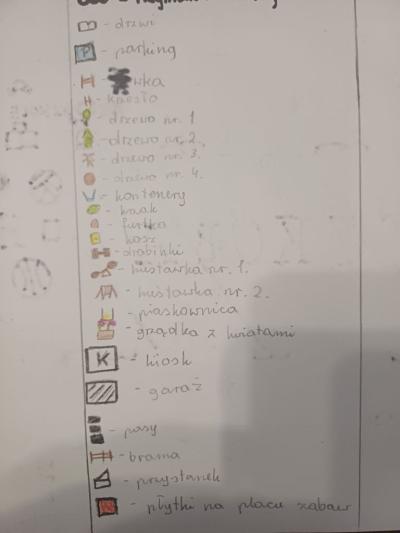 - drzwi
P - parking
- wka
- krzesło
- drzewo nr. 1
- drzewo nr. 2.
- drzewo nr. 3.
- drzewo nr. 4.
- kontenery
- krzak
- furtka
- kosz
- drabinki
- huśtawka nr. 1.
- huśtawka nr. 2.
- piaskownica
- grządka z kwiatami
K - kiosk
- garaż
- pasy
- brama
- przystanek
- płytki na placu zabaw